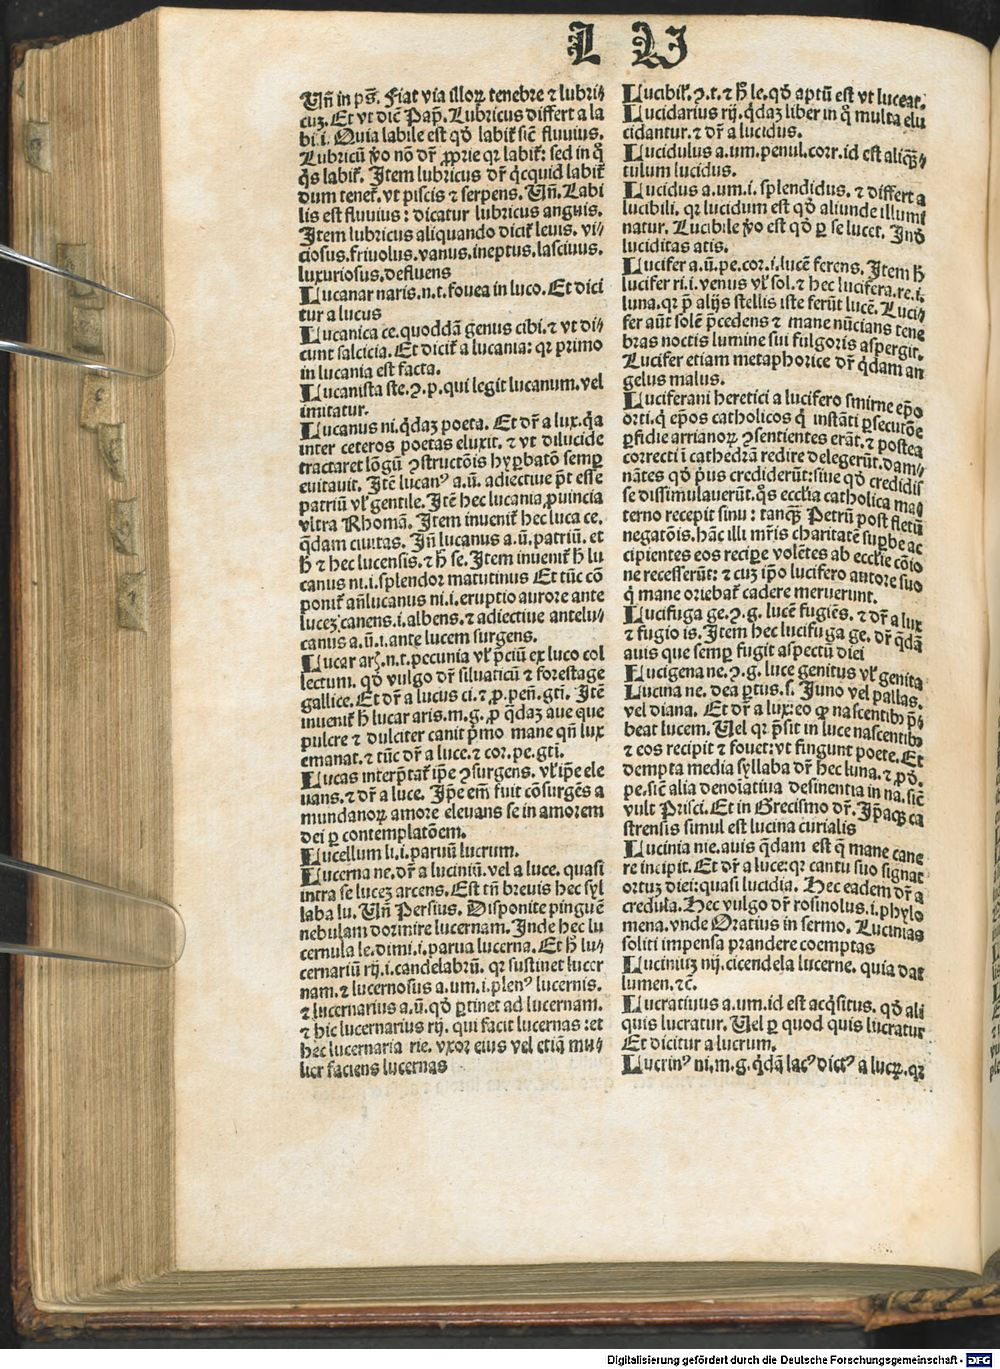 L U
Un̄ in ps̄. Fiat via illoꝝ tenebre ⁊ lubri⸗
cuꝫ. Et vt dic̄ Pap̄. Lubricus differt a la
bi.i. Quia labile est qd̓ labit̉ sic̄ fluuius.
Lubricū ꝟo nō dr̄ ꝓprie qꝛ labit̉: sed in q̊
q̊s labit̉. Item lubricus dr̄ qcquid labit̉
dum tenet̉. vt piscis ⁊ serpens. Un̄. Labi
lis est fluuius: dicatur lubricus anguis.
Item lubricus aliquando dicit̉ leuis. vi⸗
ciosus. friuolus. vanus. ineptus. lasciuus.
luxuriosus. defluens
Lucanar naris. n.t. fouea in luco. Et dici
tur a lucus
Lucanica ce. quoddā genus cibi. ⁊ vt di⸗
cunt salcicia. Et dicit̉ a lucania: qꝛ primo
in lucania est facta.
Lucanista ste. ꝯ.p. qui legit lucanum. vel
imitatur.
Lucanus ni. q̇daꝫ poeta. Et dr̄ a lux. q̇a
inter ceteros poetas eluxit. ⁊ vt dilucide
tractaret lōgū ꝯstructōis hyꝑbatō semꝑ
euitauit. Itē lucanꝰ a.ū. adiectiue p̄t esse
patriū vl̓ gentile. Itē hec lucania ꝓuincia
vltra Rhomā. Item inuenit̉ hec luca ce.
q̄dam ciuitas. In̄ lucanus a.ū. patriū. et
h̄ ⁊ hec lucensis. ⁊ h̄ se. Item inuenit̉ h̄ lu
canus ni.i. splendor matutinus Et tūc cō
ponit̉ an̄lucanus ni.i. eruptio aurore ante
luceꝫ canens.i. albens. ⁊ adiectiue antelu⸗
canus a.ū.i. ante lucem surgens.
Lucar arꝭ. n.t. pecunia vl̓ p̄ciū ex luco col
lectum. qd̓ vulgo dr̄ siluaticū ⁊ forestage
gallice. Et dr̄ a lucus ci. ⁊ ꝓ. pen̄. gti̅. Itē
inuenit̉ h̄ lucar aris. m.g. ꝓ q̄daꝫ aue que
pulcre ⁊ dulciter canit p̄mo mane qn̄ lux
emanat. ⁊ tūc dr̄ a luce. ⁊ cor. pe. gti̅.
Lucas interp̄tat̉ ip̄e ꝯsurgens. vl̓ ip̄e ele
uans. ⁊ dr̄ a luce. Ip̄e em̄ fuit cōsurgēs a
mundanoꝝ amore eleuans se in amorem
dei ꝑ contemplatōem.
Lucellum li.i. paruū lucrum.
Lucerna ne. dr̄ a luciniū. vel a luce. quasi
intra se luceꝫ arcens. Est tn̄ breuis hec syl
laba lu. Un̄ Persius. Disponite pinguē
nebulam vomere lucernam. Inde hec lu
cernula le. dimi.i. parua lucerna. Et h̄ lu⸗
cernariū rij.i. candelabrū. qꝛ sustinet lucer
nam. ⁊ lucernosus a.um.i. plenꝰ lucernis.
⁊ lucernarius a.ū. qd̓ ꝑtinet ad lucernam.
⁊ hic lucernarius rij. qui facit lucernas: et
hec lucernaria rie. vxor eius vel etiā mu⸗
lier faciens lucernas
Lucibil̓. ꝯ.t. ⁊ h̄ le. qd̓ aptū est vt luceat.
Lucidarius rij. q̇daꝫ liber in q̊ multa elu
cidantur. ⁊ dr̄ a lucidus.
Lucidulus a.um. penul. corr. id est aliqꝫ̄⸗
tulum lucidus.
Lucidus a.um.i. splendidus. ⁊ differt a
lucibili. qꝛ lucidum est qd̓ aliunde illumi
natur. Lucibile ꝟo est qd̓ ꝑ se lucet. Ind̓
luciditas atis.
Lucifer a.ū. pe. cor.i. lucē ferens. Item h̄
lucifer ri.i. venus vl̓ sol. ⁊ hec lucifera. re.i.
luna. qꝛ p̄ alijs stellis iste ferūt lucē. Luci⸗
fer aūt solē p̄cedens ⁊ mane nūcians tene
bras noctis lumine sui fulgoris aspergit.
Lucifer etiam metaphorice dr̄ q̇dam an
gelus malus.
Luciferani heretici a lucifero smirne ep̄o
orti. q̇ ep̄os catholicos q̇ instāti ꝑsecutōe
ꝑfidie arrianoꝝ ꝯsentientes erāt. ⁊ postea
correcti ī cathedrā redire delegerūt. dam⸗
nātes qd̓ p̓us crediderūt: siue qd̓ credidis
se dissimulauerūt. q̊s eccl̓ia catholica ma⸗
terno recepit sinu: tanqꝫ Petrū post fletū
negatōis. hāc illi mr̄is charitatē suꝑbe ac
cipientes eos reciꝑe volētes ab eccl̓ie cōio
ne recesserūt: ⁊ cuꝫ ip̄o lucifero autore suo
q̇ mane oriebat̉ cadere meruerunt.
Lucifuga ge. ꝯ.g. lucē fugiēs. ⁊ dr̄ a lux
⁊ fugio is. Item hec lucifuga ge. dr̄ q̄dā
auis que semꝑ fugit aspectū diei
Lucigena ne. ꝯ.g. luce genitus vl̓ genita
Lucina ne. dea ꝑtus. s. Juno vel pallas.
vel diana. Et dr̄ a lux: eo ꝙ nascentibꝰ p̄⸗
beat lucem. Uel qꝛ p̄sit in luce nascentibꝰ
⁊ eos recipit ⁊ fouet: vt fingunt poete. Et
dempta media syllaba dr̄ hec luna. ⁊ ꝓd̓.
pe. sic̄ alia denoīatiua desinentia in na. sic̄
vult Prisci. Et in Grecismo dr̄. Ip̄aqꝫ ca
strensis simul est lucina curialis
Lucinia nie. auis q̄dam est q̄ mane cane
re incipit. Et dr̄ a luce: qꝛ cantu suo signat
ortuꝫ diei: quasi lucidia. Hec eadem dr̄ a
credula. Hec vulgo dr̄ rosinolus.i. phylo
mena. vnde Oratius in sermo. Lucinias
soliti impensa prandere coemptas
Luciniuꝫ nij. cicendela lucerne. quia dat
lumen. ⁊c̄.
Lucratiuus a.um. id est acq̇situs. qd̓ ali
quis lucratur. Uel ꝑ quod quis lucratur
Et dicitur a lucrum.
Lucrinꝰ ni. m.g. q̇dā lacꝰ dictꝰ a lucꝝ. qꝛ
Digitalisierung gefördert durch die Deutsche Forschungsgemeinschaft - DFG